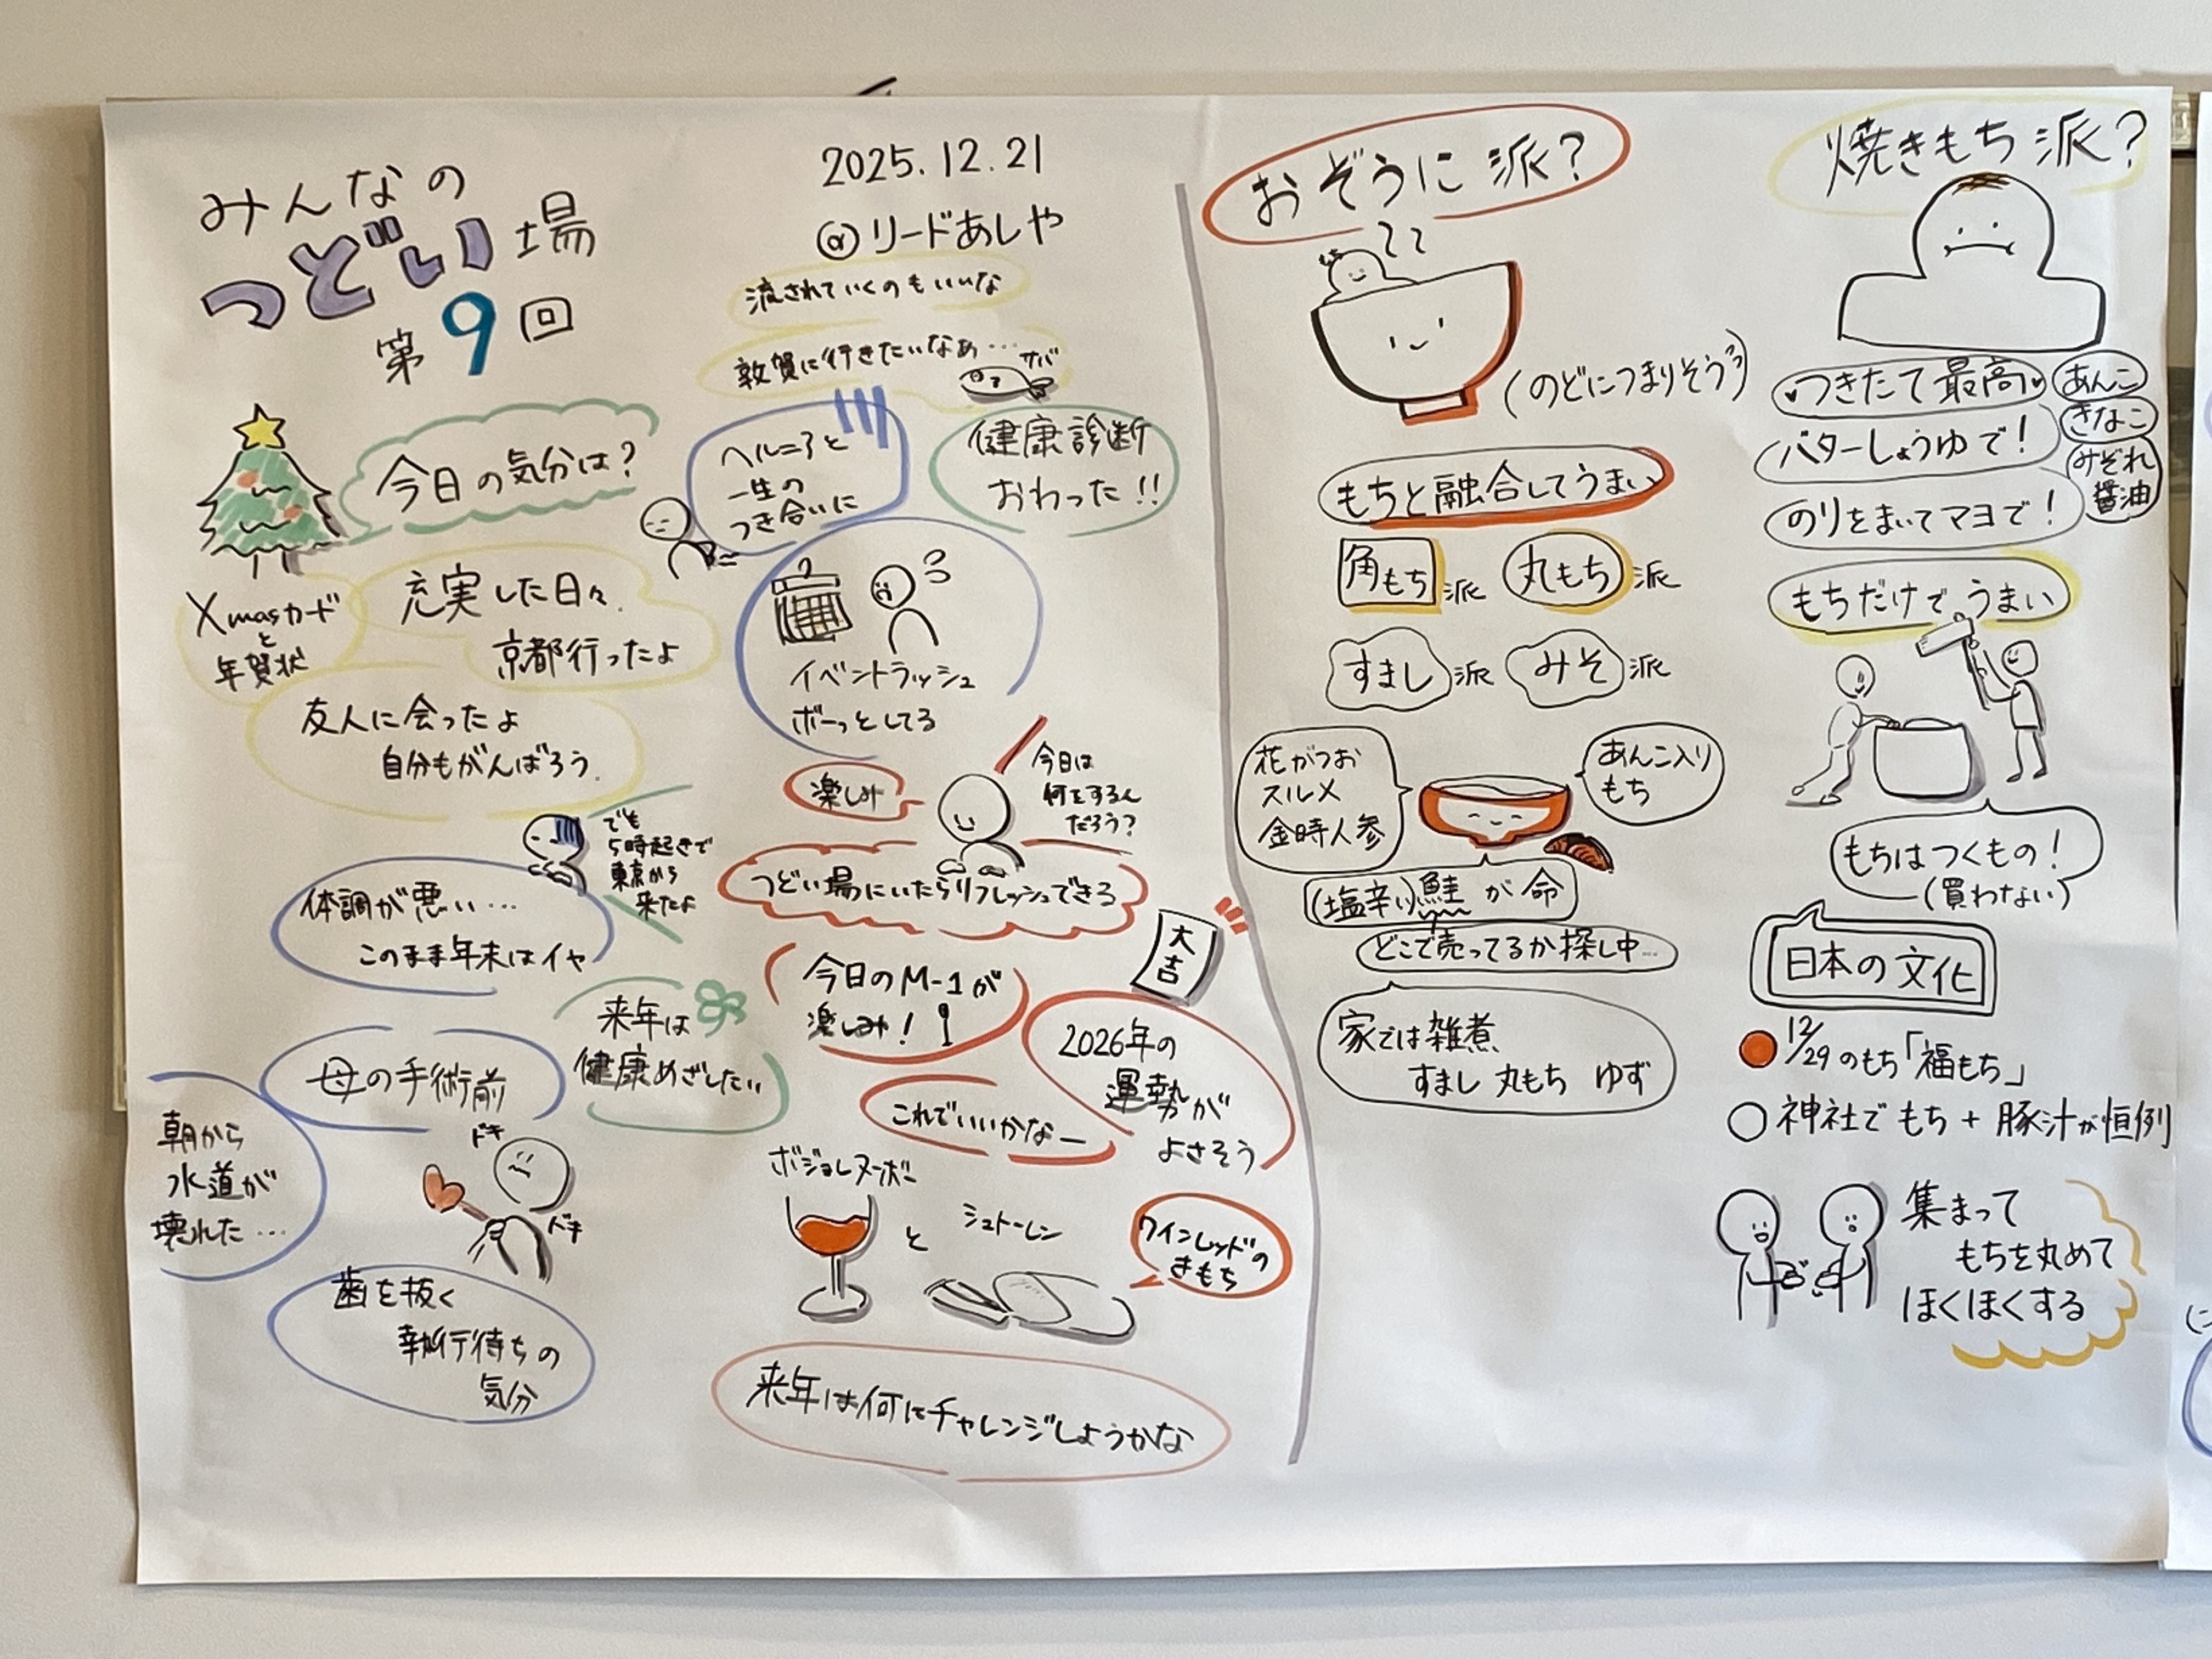 みんなの
つどい場
第9回
2025.12.21
@リードあしや
今日の気分は?
流されていくのもいいな
敦賀に行きたいなぁ…
サバ
ヘルニアと
一生の
つき合いに
健康診断
おわった!!
Xmasカード
と
年賀状
充実した日々.
京都行ったよ
友人に会ったよ
自分もがんばろう.
イベントラッシュ
ボーっとしてる
でも
5時起きで
東京から
来たよ
体調が悪い…
このまま年末はイヤ
楽しみ
今日は
何をするん
だろう?
つどい場にいたらリフレッシュできる
来年は
健康めざしたい
今日のM-1が
楽しみ!
大吉
2026年の
運勢が
よさそう
これでいいかなー
母の手術前
朝から
水道が
壊れた…
ドキ
ドキ
歯を抜く
執行待ちの
気分
ボジョレヌーボー
と
シュトーレン
ワインレッドの
きもち
来年は何にチャレンジしようかな
おぞうに派?
(のどにつまりそう)
もちと融合してうまい
角もち派
丸もち派
すまし派
みそ派
花がつお
スルメ
金時人参
あんこ入り
もち
(塩辛い)鮭が命
どこで売ってるか探し中…
家では雑煮
すまし 丸もち ゆず
焼きもち派?
つきたて最高
あんこ
きなこ
みぞれ
醤油
バターしょうゆで!
のりをまいてマヨで!
もちだけでうまい
もちはつくもの!
(買わない)
日本の文化
12/29のもち「福もち」
神社でもち+豚汁が恒例
集まって
もちを丸めて
ほくほくする